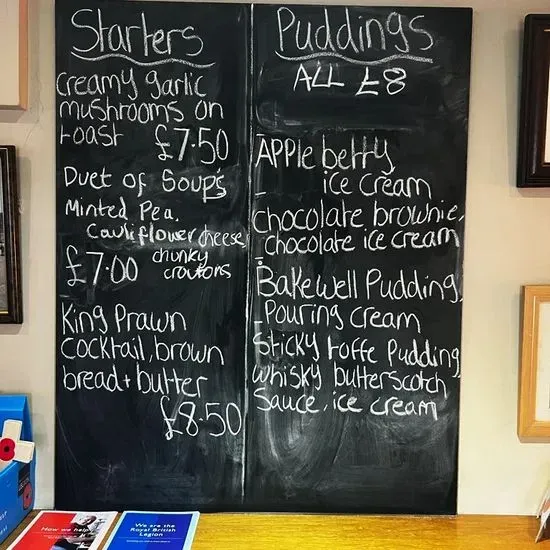 Starters
creamy garlic
mushrooms on
toast £7.50
Duet of Soups
Minted Pea.
Cauliflower cheese
chunky
£7.00 croutons
King Prawn
cocktail, brown
bread + butter
£8.50
Puddings
ALL £8
APPle betty
ice cream
chocolate brownie,
chocolate ice cream
Bakewell Pudding,
Pouring cream
Sticky toffe Pudding
whisky butterscotch
Sauce, ice cream
Now we help
We are the
Royal British
Legion